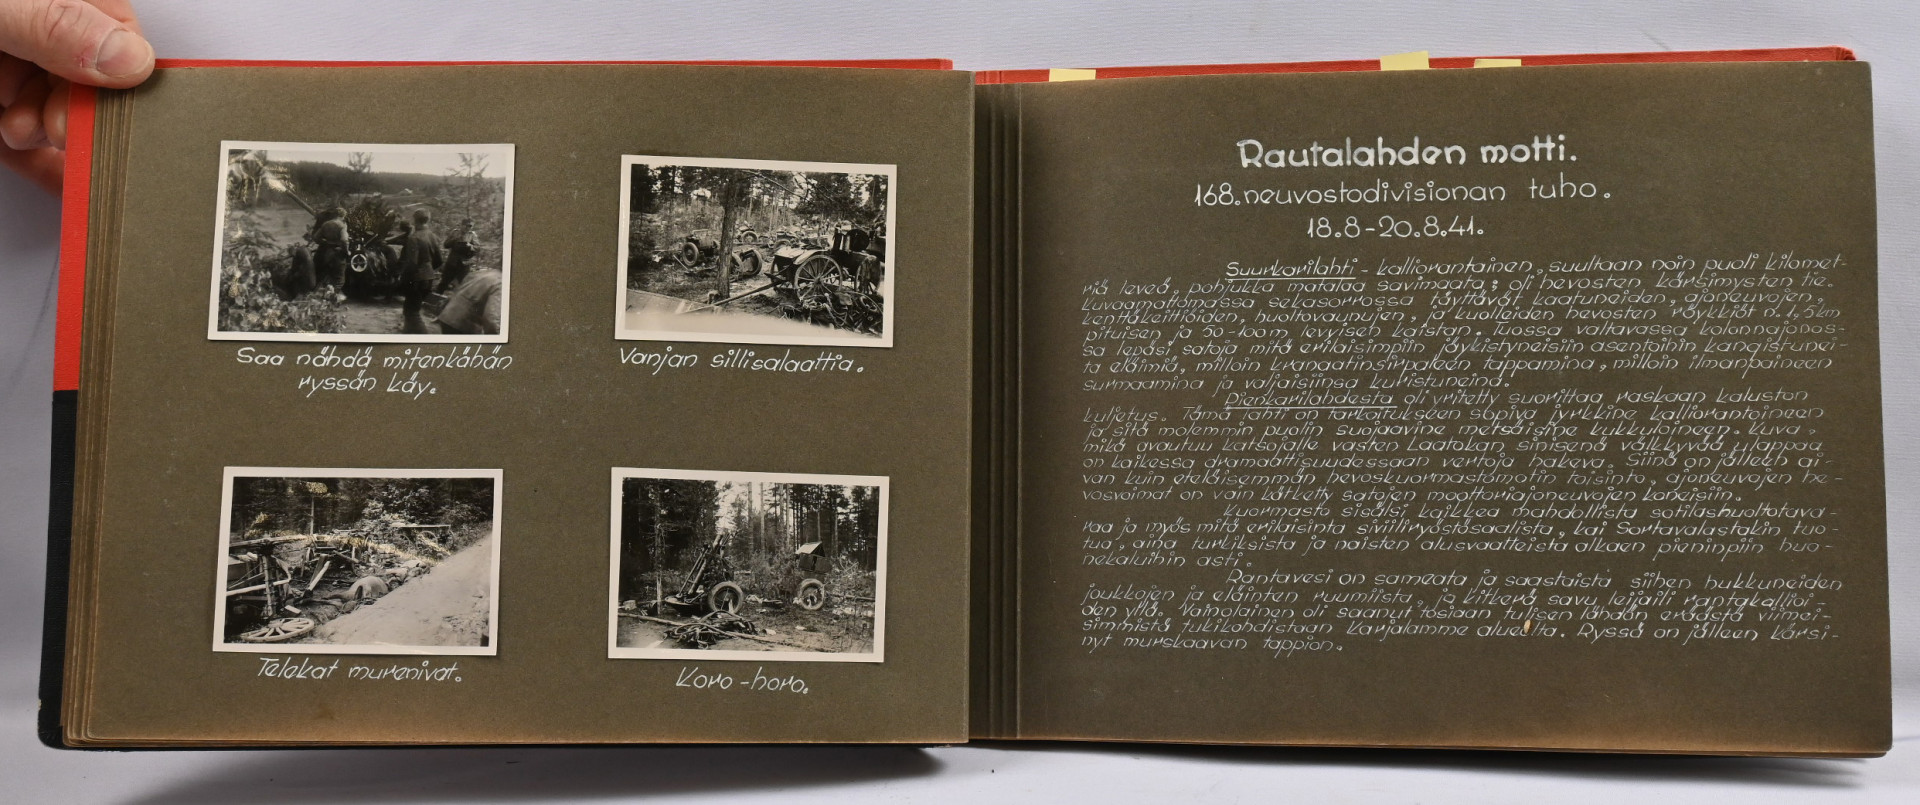 Saa nähdä mitenkähän
ryssän käy.
Vanjan sillisalaattia.
Telekat murenivat.
Koro-horo.
Rautalahden motti.
168. neuvostodivisionan tuho.
18.8-20.8.41.
Suurkarilahti - kalliorantainen, suultaan noin puoli kilomet-
riä leveä, pohjukka matalaa savimaata; oli hevosten kärsimysten tie.
Kuvaamattomassa sekasorrossa täyttävät kaatuneiden, ajoneuvojen,
kenttäkeittiöiden, huoltovaunujen, ja kuolleiden hevosten röykkiöt n. 1,5km
pituisen ja 50-100m levyisen kaistan. Tuossa valtavassa kolonnajonos-
sa lepäsi satoja mitä erilaisimpiin jäykistyneisiin asentoihin kangistunei-
ta eläimiä, milloin kranaatinsirpaleen tappamina, milloin ilmanpaineen
surmaamina ja valjaisiinsa kuristuneina.
Pienkarilahdesta oli yritetty suorittaa raskaan kaluston
kuljetus. Tämä lahti on tarkoitukseen sopiva jyrkkine kalliorantoineen
ja sitä molemmin puolin suojaavine metsäisine kukkuloineen. Kuva,
mikä avautuu katsojalle vasten Laatokan sinisenä välkkyvää ulappaa
on kaikessa dramaattisuudessaan vertoja hakeva. Siinä on jälleen ai-
van kuin eteläisemmän hevoskuormastomotin toisinto, ajoneuvojen he-
vosvoimat on vain kätketty satojen moottoriajoneuvojen koneisiin.
Kuormasto sisälsi kaikkea mahdollista sotilashuoltotava-
raa ja myös mitä erilaisinta siviiliryöstösaalista, kai Sortavalastakin tuo-
tua, aina turkiksista ja naisten alusvaatteista alkaen pieninpiin huo-
nekaluihin asti.
Rantavesi on sameata ja saastaista siihen hukkuneiden
joukkojen ja eläinten ruumiista, ja kitkerä savu leijaili rantakallioi-
den yllä. Vainolainen oli saanut tosiaan tulisen lähdön eräästä viimei-
simmistä tukikohdistaan Karjalamme alueelta. Ryssä on jälleen kärsi-
nyt murskaavan tappion.